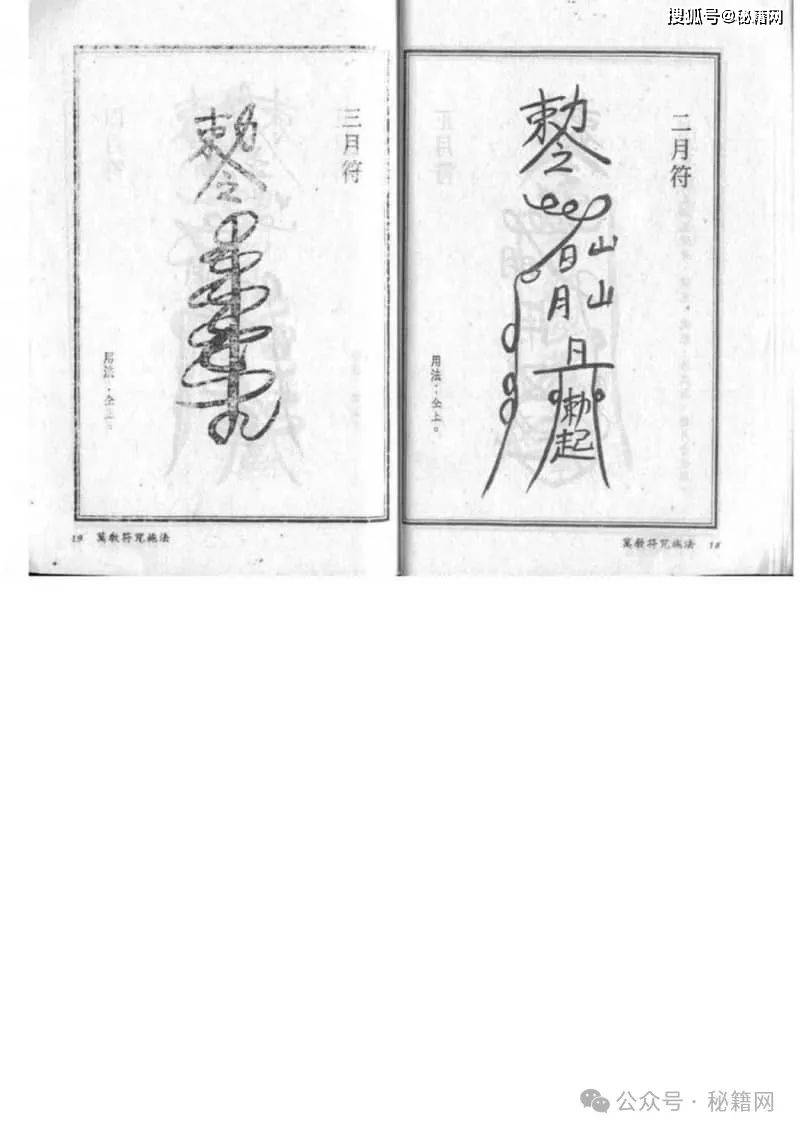 搜狐号@秘籍网
二月符
勅令
日月
山山
日
勅起
用法：仝上。
萬教符咒施法 18
三月符
勅令
用法：仝上。
19 萬教符咒施法
公众号·秘籍网